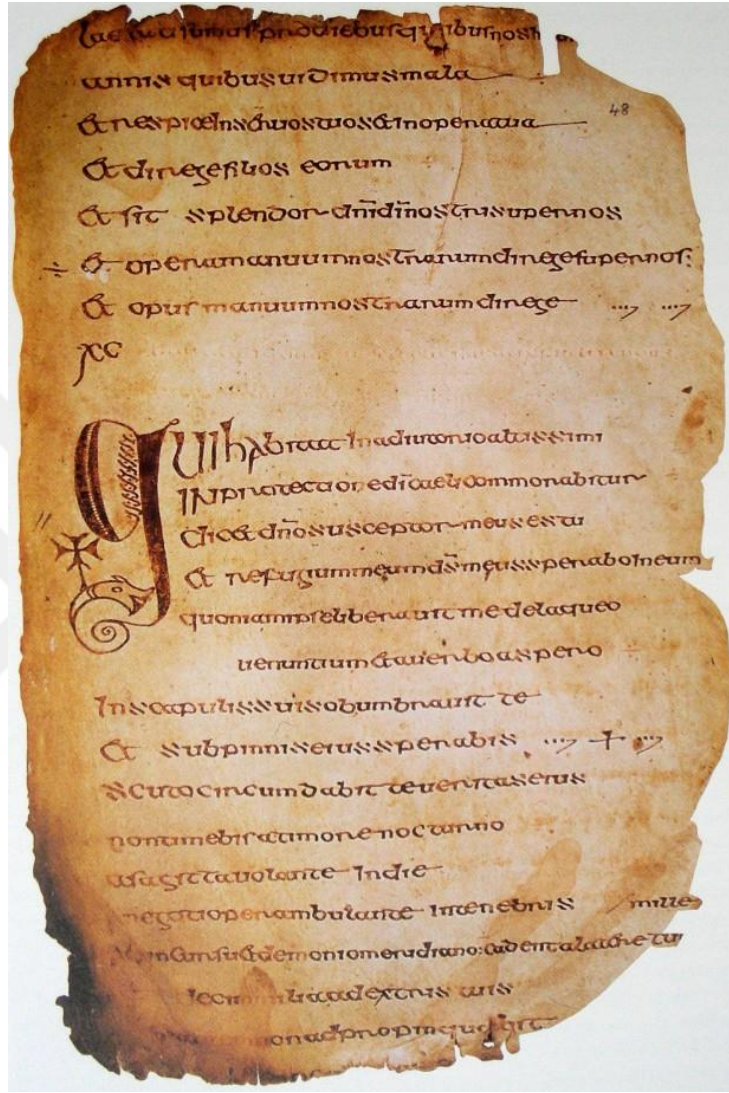 laetati sumus pro diebus quibus nos
annis quibus uidimus mala
Et respice In seruos tuos et in opera tua
Et direge filios eorum
Et sit splendor dn̄i dī nostri super nos
÷ Et opera manuum nostrarum direge super nos:
Et opus manuum nostrarum direge
48
xc
Qui habitat In adiutorio altissimi
IN protectione dī caeli commorabitur
dicet dn̄o susceptor meus es tu
Et refugium meum ds̄ meus sperabo In eum
quoniam ipse liberauit me de laqueo
uenantium et a uerbo aspero
In scapulis suis obumbrauit te
Et sub pinnis eius sperabis +
Scuto circumdabit te ueritas eius
non timebis a timore nocturno
a sagitta uolante In die
negotio perambulante In tenebris / mille
Incursu et demonio meridiano: cadent a latere tu
decim milia a dextris tuis
non adpropinquabit